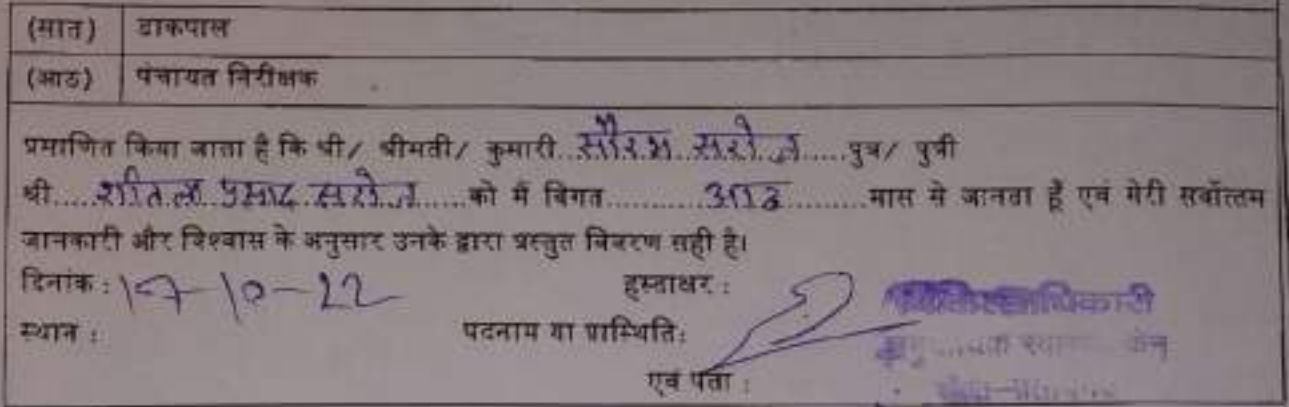 (सात) डाकपाल
(आठ) पंचायत निरीक्षक
प्रमाणित किया जाता है कि श्री/ श्रीमती/ कुमारी..सौरभ सरोज.....पुत्र/ पुत्री
श्री.....शीतला प्रसाद सरोज......को मैं विगत...........आठ.........मास से जानता हूँ एवं मेरी सर्वोत्तम
जानकारी और विश्वास के अनुसार उनके द्वारा प्रस्तुत विवरण सही है।
दिनांक : 17-10-22 हस्ताक्षर :
स्थान : पदनाम या प्रास्थिति:
एवं पता :